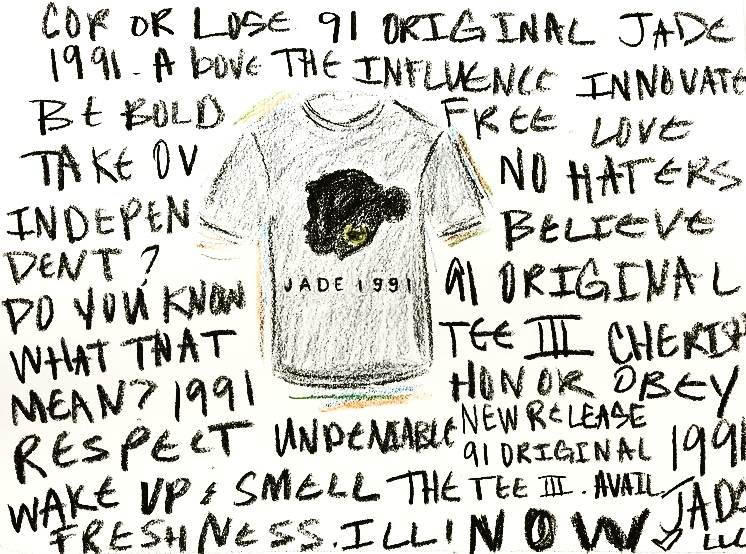 COP OR LOSE 91 ORIGINAL JADE
1991. Above THE INFLUENCE INNOVATE
BE BOLD
TAKE OV
INDEPEN
DENT?
DO YOU KNOW
WHAT THAT
MEAN? 1991
RESPECT
FREE LOVE
NO HATERS
BELIEVE
91 ORIGINAL
TEE III CHERISH
HONOR OBEY
JADE 1991
UNDENIABLE
NEW RELEASE
91 ORIGINAL 1991
WAKE UP & SMELL THE TEE III. AVAIL JADE
FRESHNESS. ILLI NOW LLC